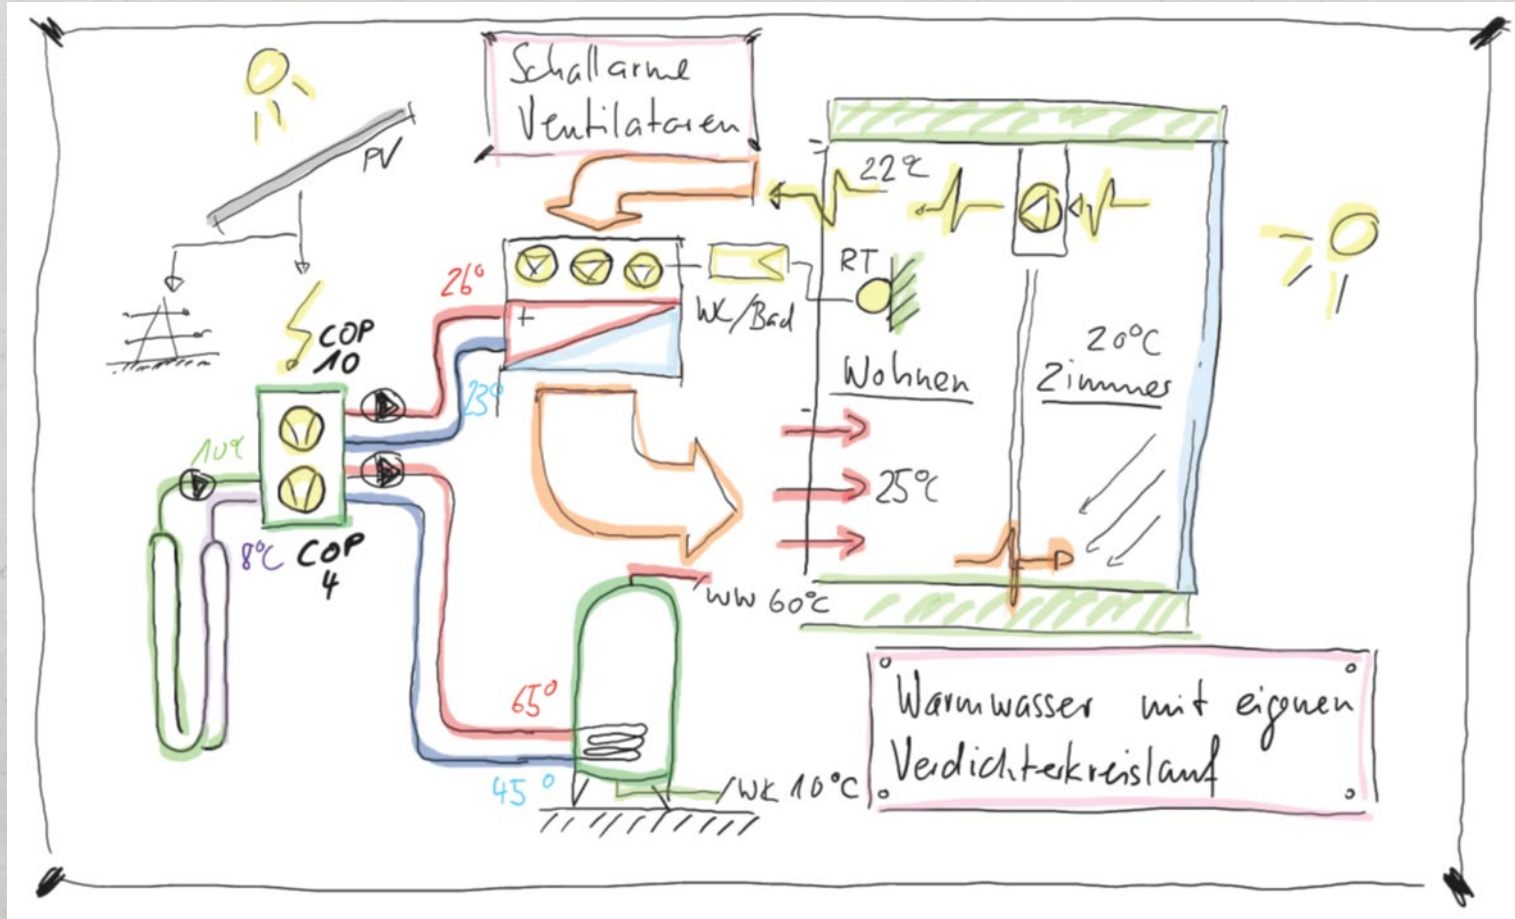 Schallarme
Ventilatoren
PV
22°C
26°
RT
WC/Bad
+
COP
10
20°C
Wohnen
Zimmer
23°
10°C
25°C
8°C
COP
4
WW 60°C
65°
45°
WK 10°C
Warmwasser mit eignen
Verdichterkreislauf